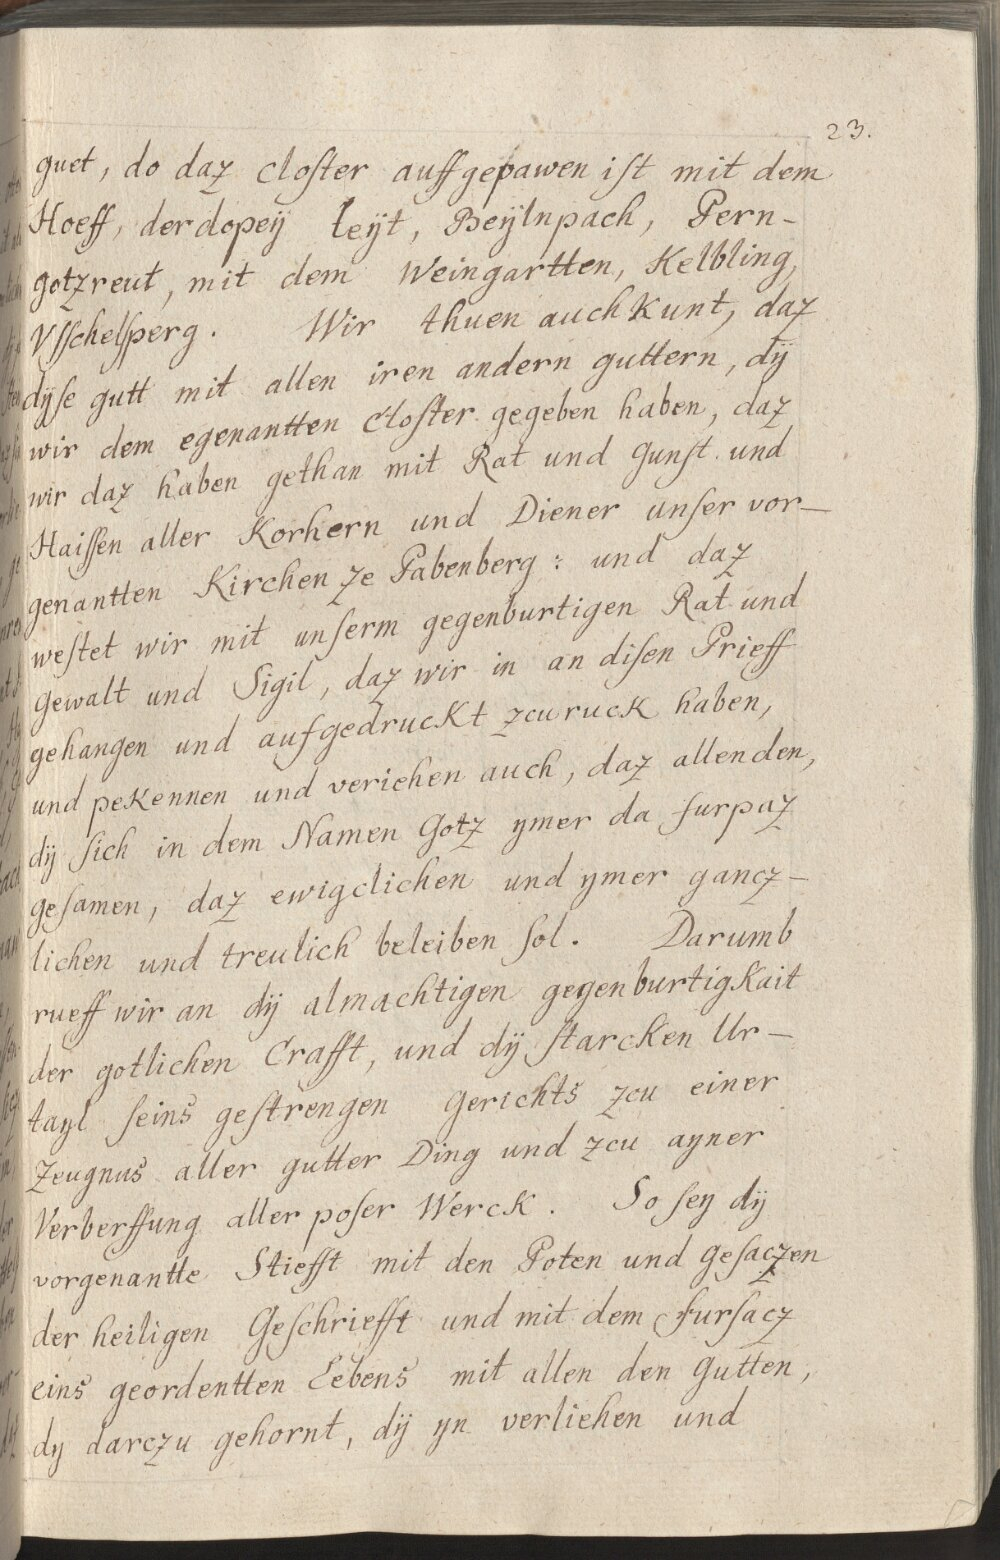 23.
guet, do daz closter auffgepawen ist mit dem
Hoeff, derdopeÿ leÿt, Beÿlnpach, Pern-
gotzreut, mit dem Weingartten, Kelbling,
Vsschelsperg. Wir thuen auch Kunt, daz
dÿse gutt mit allen iren andern guttern, dÿ
wir dem egenantten Closter gegeben haben, daz
wir daz haben gethan mit Rat und Gunst und
Haissen aller Korhern und Diener unser vor-
genantten Kirchen ze Pabenberg: und daz
westet wir mit unserm gegenburtigen Rat und
Gewalt und Sigil, daz wir in an disen Prieff
gehangen und aufgedruckt zcuruck haben,
und pekennen und veriehen auch, daz allen den,
dÿ sich in dem Namen Gotz ymer da furpaz
gesamen, daz ewigclichen und ymer gancz-
lichen und treulich beleiben sol. Darumb
rueff wir an dÿ almachtigen gegenburtigkait
der gotlichen Crafft, und dÿ starcken Ur-
tayl seins gestrengen Gerichts zcu einer
Zeugnus aller gutter Ding und zcu ayner
Verberffung aller poser Werck. So sey dÿ
vorgenantte Stiefft mit den Poten und Gesaczen
der heiligen Geschriefft und mit dem fursacz
eins geordentten Lebens mit allen den Gutten,
dy darczu gehornt, dÿ yn verliehen und